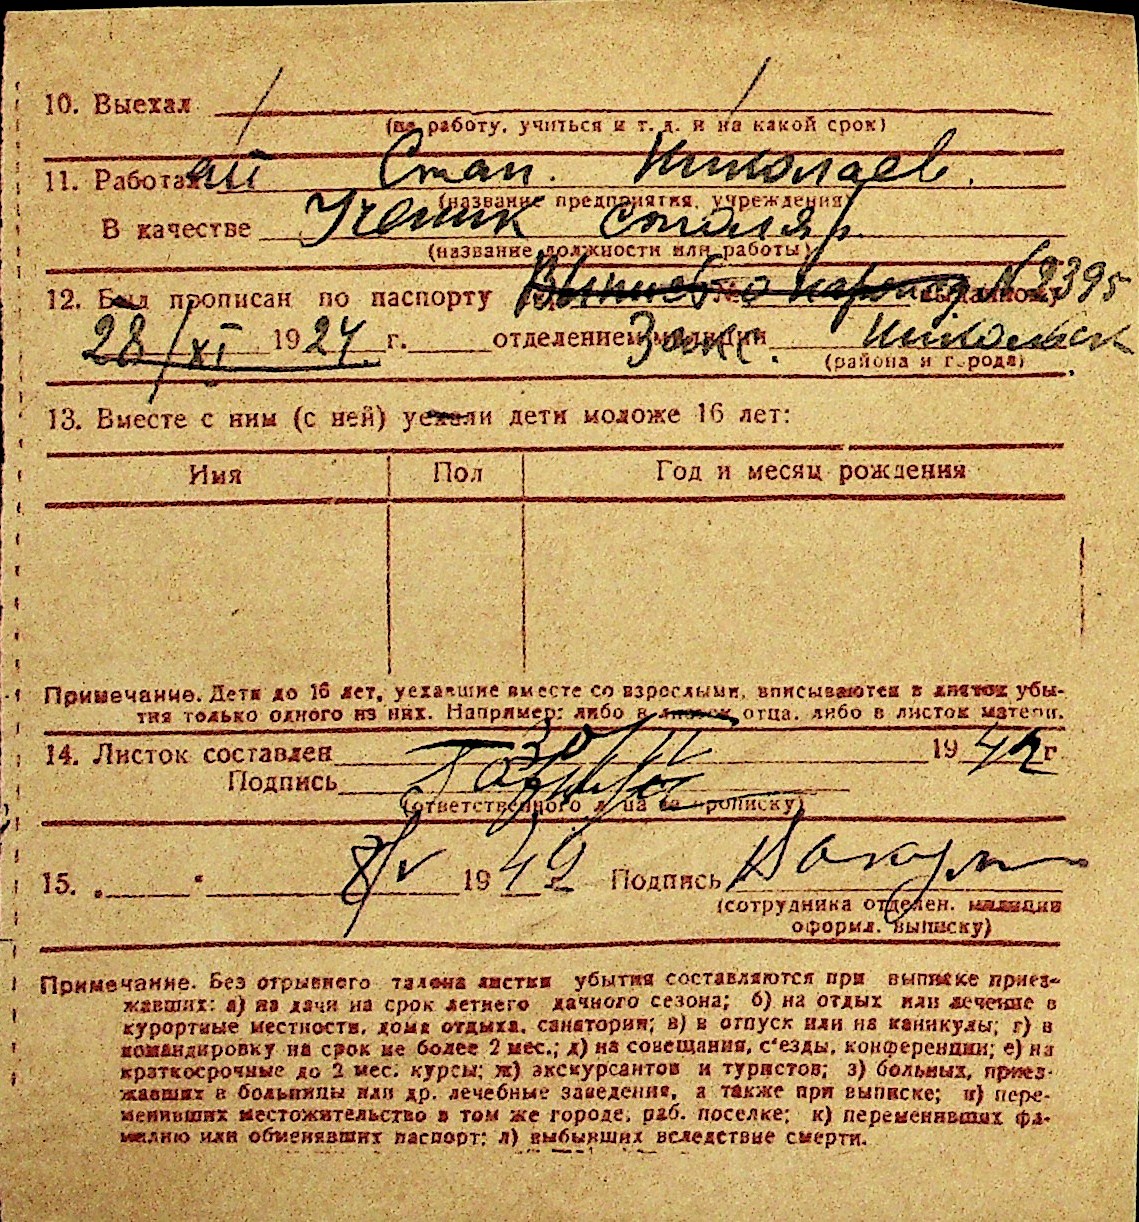 10. Выехал
(на работу, учиться и т. д. и на какой срок)
11. Работал Стан. Николаев.
(название предприятия, учреждения)
В качестве Ученик столяр.
(название должности или работы)
12. Был прописан по паспорту выданному №2395
28/XI 1924 г. отделением милиции Закс. Никольск
(района и города)
13. Вместе с ним (с ней) уехали дети моложе 16 лет:
Имя Пол Год и месяц рождения
Примечание. Дети до 16 лет, уехавшие вместе со взрослыми, вписываются в листок убы-
тия только одного из них. Например: либо в листок отца, либо в листок матери.
14. Листок составлен 30/IV 1942 г
Подпись
(ответственного лица за прописку)
15. „ “ 8/V 1942 Подпись
(сотрудника отделен. милиции
оформл. выписку)
Примечание. Без отрывного талона листки убытия составляются при выписке приез-
жавших: а) на дачи на срок летнего дачного сезона; б) на отдых или лечение в
курортные местности, дома отдыха, санатории; в) в отпуск или на каникулы; г) в
командировку на срок не более 2 мес.; д) на совещания, с'езды, конференции; е) на
краткосрочные до 2 мес. курсы; ж) экскурсантов и туристов; з) больных, приез-
жавших в больницы или др. лечебные заведения, а также при выписке; и) пере-
менивших местожительство в том же городе, раб. поселке; к) переменивших фа-
милию или обменявших паспорт; л) выбывших вследствие смерти.